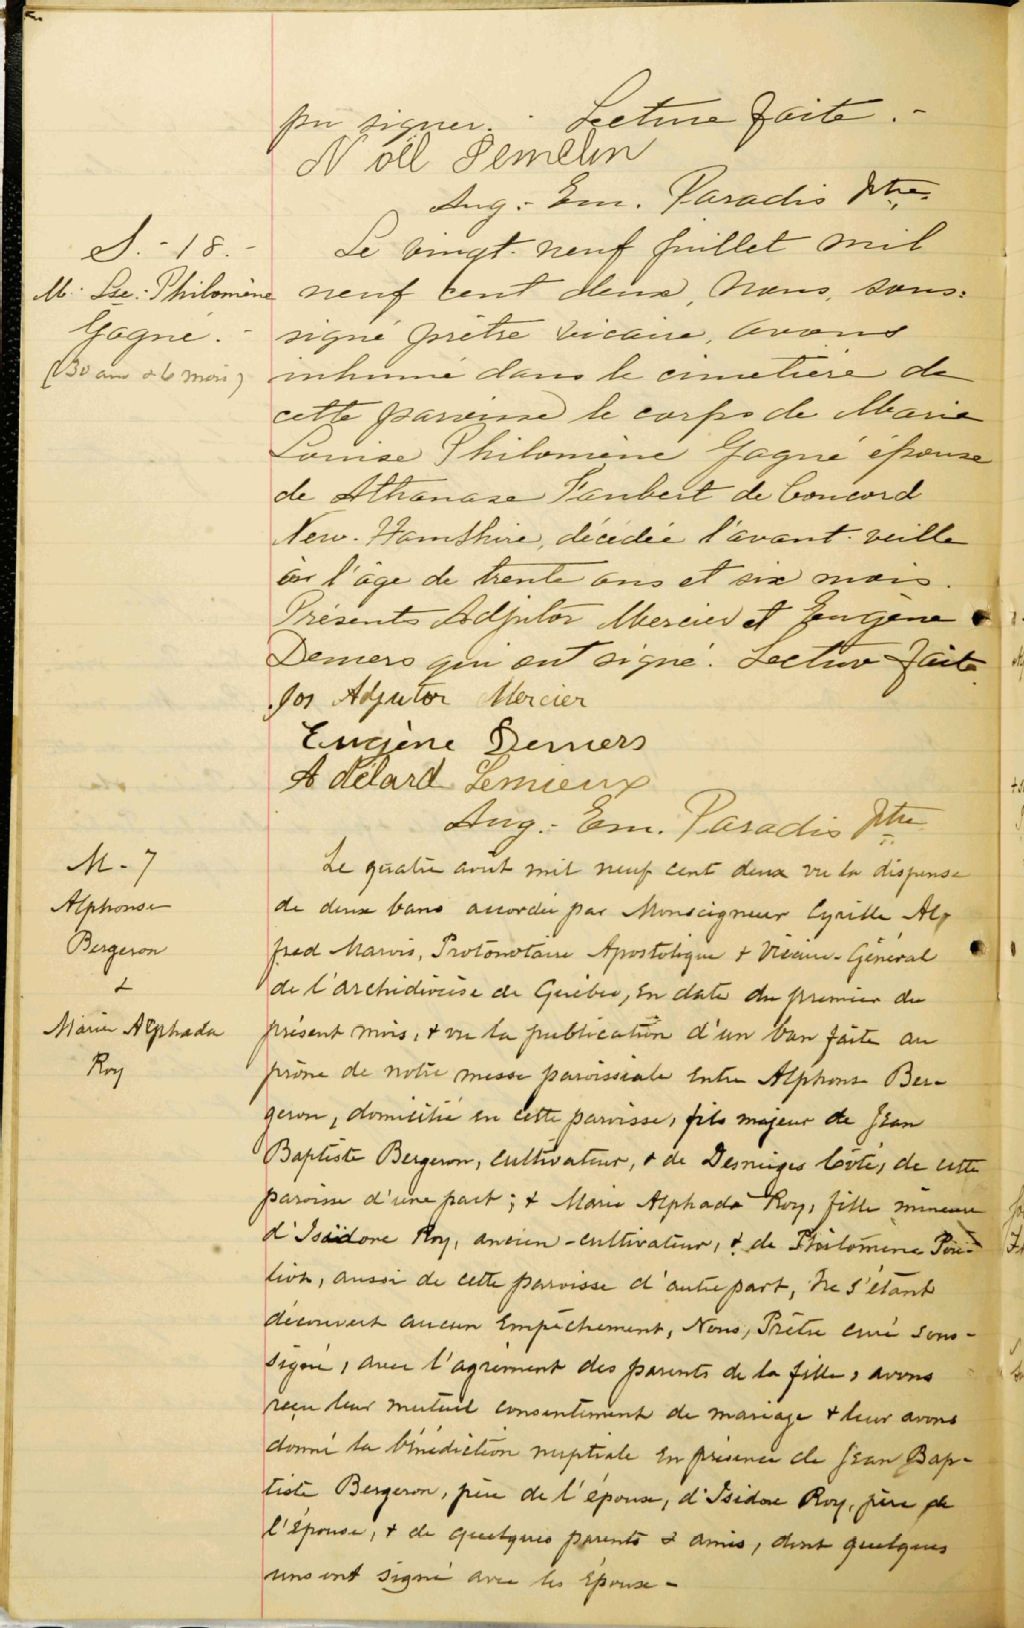 pu signer. - Lecture faite. -
Noël Gemelin
Aug. - Em. Paradis Ptre.
S. - 18. -
M. Lse. - Philomène
Gagné. -
(30 ans & 6 mois)
Le vingt-neuf juillet mil
neuf cent deux, Nous, sous-
signé prêtre vicaire, avons
inhumé dans le cimetière de
cette paroisse le corps de Marie
Louise Philomène Gagné épouse
de Athanase Faubert de Concord
New-Hamshire, décédée l'avant-veille
à l'âge de trente ans et six mois.
Présents Adjutor Mercier et Eugène
Demers qui ont signé. Lecture faite
Jos Adjutor Mercier
Eugène Demers
Adélard Lemieux
Aug. - Em. Paradis Ptre
M - 7
Alphonse
Bergeron
&
Marie Alphada
Roy
Le quatre août mil neuf cent deux vu la dispense
de deux bans accordée par Monseigneur Cyrille Alp
fred Marois, Protonotaire Apostolique & Vicaire-Général
de l'archidiocèse de Québec, en date du premier du
présent mois, & vu la publication d'un ban faite au
prône de notre messe paroissiale entre Alphonse Ber-
geron, domicilié en cette paroisse, fils majeur de Jean
Baptiste Bergeron, cultivateur, & de Desneiges Côté, de cette
paroisse d'une part; & Marie Alphada Roy, fille mineure
d'Isaïdore Roy, ancien-cultivateur, & de Philomène Pou-
liot, aussi de cette paroisse d'autre part, ne s'étant
découvert aucun empêchement, Nous, Prêtre curé sous-
signé, avec l'agrément des parents de la fille, avons
reçu leur mutuel consentement de mariage & leur avons
donné la bénédiction nuptiale en présence de Jean Bap-
tiste Bergeron, père de l'époux, d'Isidore Roy, père de
l'épouse, & de quelques parents & amis, dont quelques
uns ont signé avec les époux -